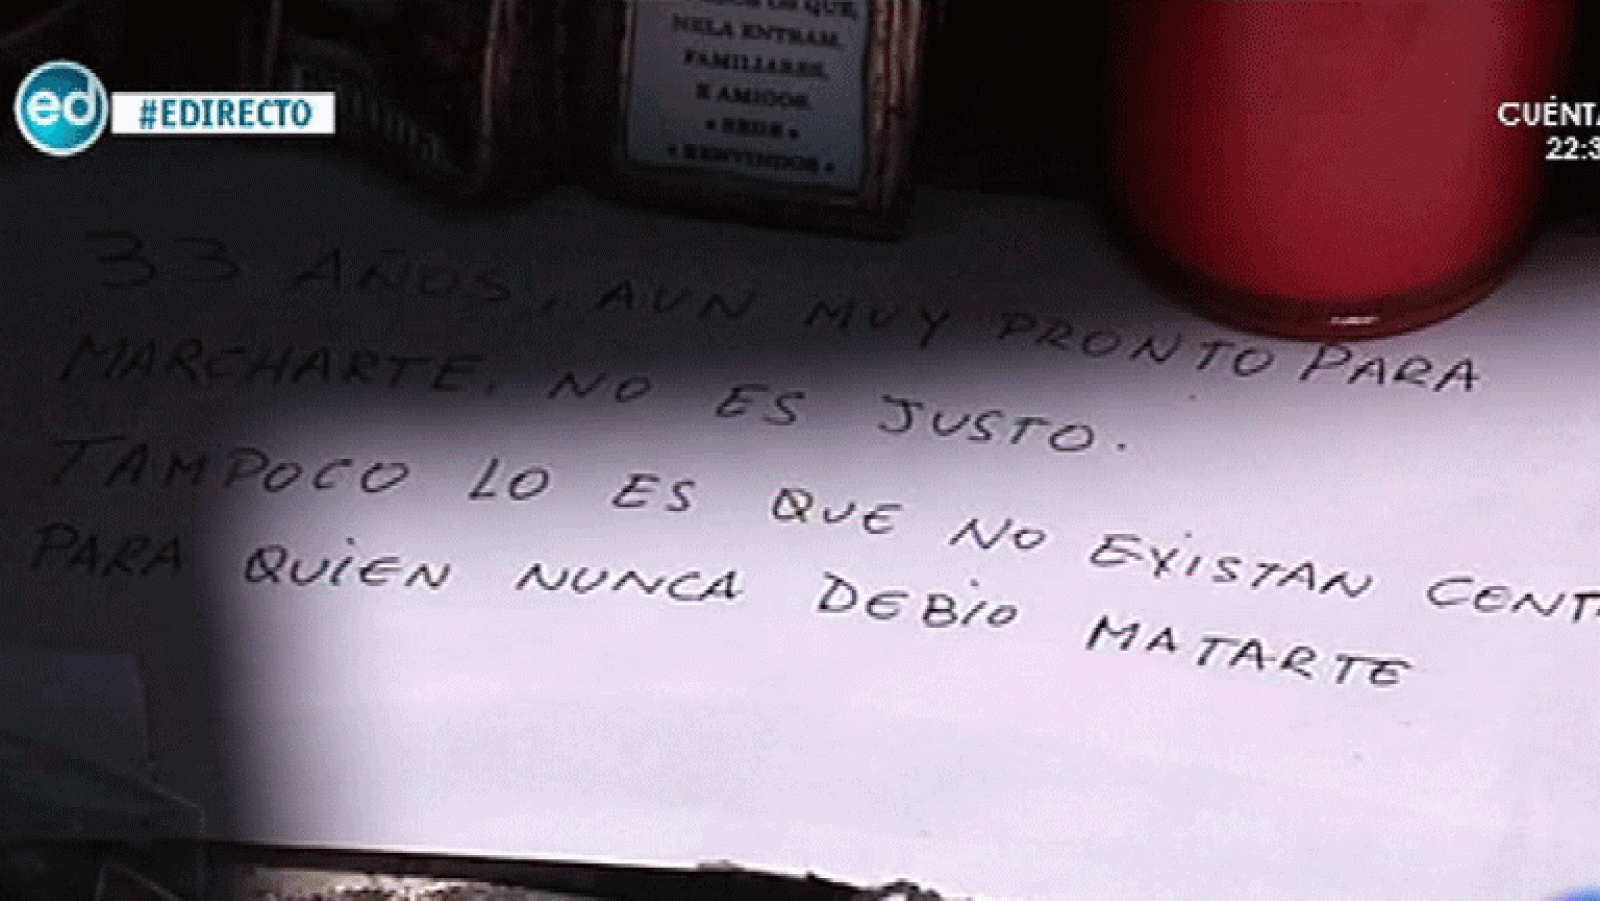 ed #EDIRECTO
CUÉNTA
22:3
OS QUE,
NELA ENTRAM,
FAMILIARES,
E AMIGOS
BENVINDOS
33 AÑOS, AUN MUY PRONTO PARA
MARCHARTE. NO ES JUSTO.
TAMPOCO LO ES QUE NO EXISTAN CENT
PARA QUIEN NUNCA DEBIO MATARTE